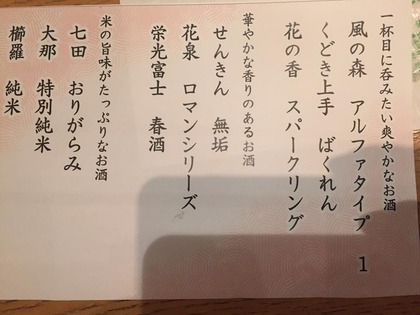 一杯目に呑みたい爽やかなお酒
風の森 アルファタイプ 1
くどき上手 ばくれん
花の香 スパークリング
華やかな香りのあるお酒
せんきん 無垢
花泉 ロマンシリーズ
栄光富士 春酒
米の旨味がたっぷりなお酒
七田 おりがらみ
大那 特別純米
櫛羅 純米